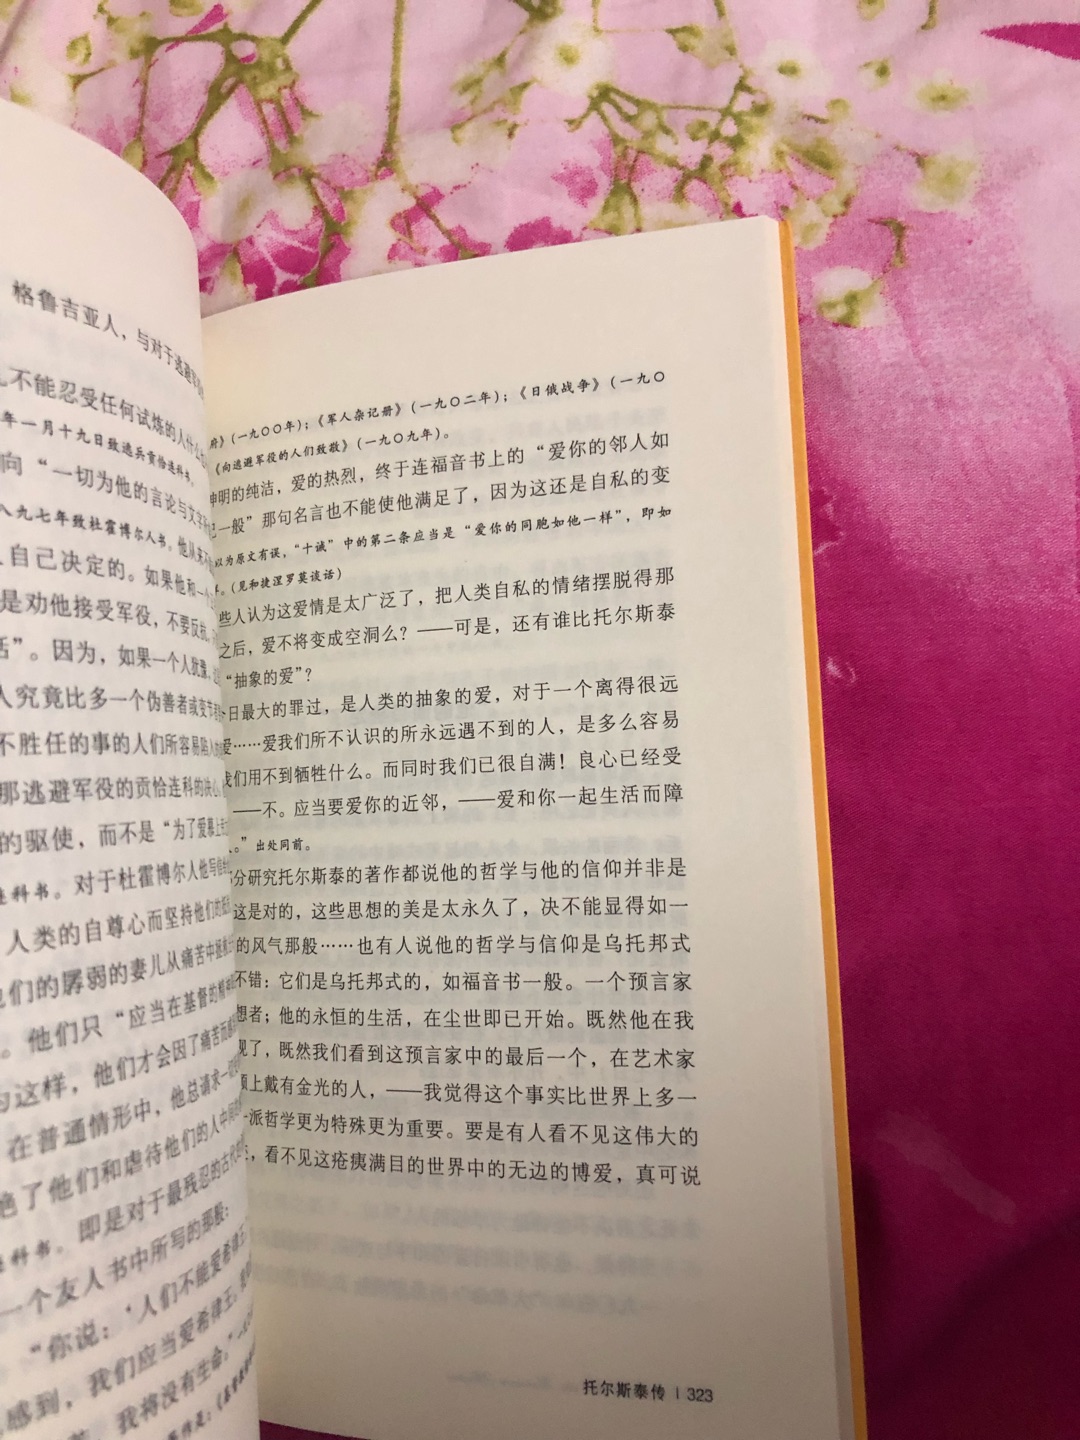 格鲁吉亚人，与对于逃避
不能忍受任何试炼的人什么
年一月十九日致逃兵贡恰连科书。
向“一切为他的言论与文字
八九七年致杜霍博尔人书。他从来不
自己决定的。如果他和一个
是劝他接受军役，不要反抗，
活”。因为，如果一个人犹豫，
人究竟比多一个伪善者或变节
不胜任的事的人们所容易陷入
那逃避军役的贡恰连科的决心，
的驱使，而不是“为了爱慕
连科书。对于杜霍博尔人他写信
人类的自尊心而坚持他们的
他们的孱弱的妻儿从痛苦中拯救
。他们只“应当在基督的精神
为这样，他们才会因了痛苦而
在普通情形中，他总请求一切
绝了他们和虐待他们的人中间
连科书。即是对于最残忍的古代
一个友人书中所写的那般：
“你说：‘人们不能爱希律王
感到，我们应当爱希律王。
我将没有生命。”
府》(一九〇〇年)；《军人杂记册》(一九〇二年)；《日俄战争》(一九〇
《向逃避军役的人们致敬》(一九〇九年)。
神明的纯洁，爱的热烈，终于连福音书上的“爱你的邻人如
己一般”那句名言也不能使他满足了，因为这还是自私的变
以为原文有误，“十诫”中的第二条应当是“爱你的同胞如他一样”，即如
。(见和捷涅罗莫谈话)
些人认为这爱情是太广泛了，把人类自私的情绪摆脱得那
之后，爱不将变成空洞么？——可是，还有谁比托尔斯泰
“抽象的爱”？
日最大的罪过，是人类的抽象的爱，对于一个离得很远
爱……爱我们所不认识的所永远遇不到的人，是多么容易
我们用不到牺牲什么。而同时我们已很自满！良心已经受
——不。应当要爱你的近邻，——爱和你一起生活而障
。”出处同前。
分研究托尔斯泰的著作都说他的哲学与他的信仰并非是
这是对的，这些思想的美是太永久了，决不能显得如一
的风气那般……也有人说他的哲学与信仰是乌托邦式
不错：它们是乌托邦式的，如福音书一般。一个预言家
想者；他的永恒的生活，在尘世即已开始。既然他在我
现了，既然我们看到这预言家中的最后一个，在艺术家
额上戴有金光的人，——我觉得这个事实比世界上多一
一派哲学更为特殊更为重要。要是有人看不见这伟大的
，看不见这疮痍满目的世界中的无边的博爱，真可说
托尔斯泰传 | 323